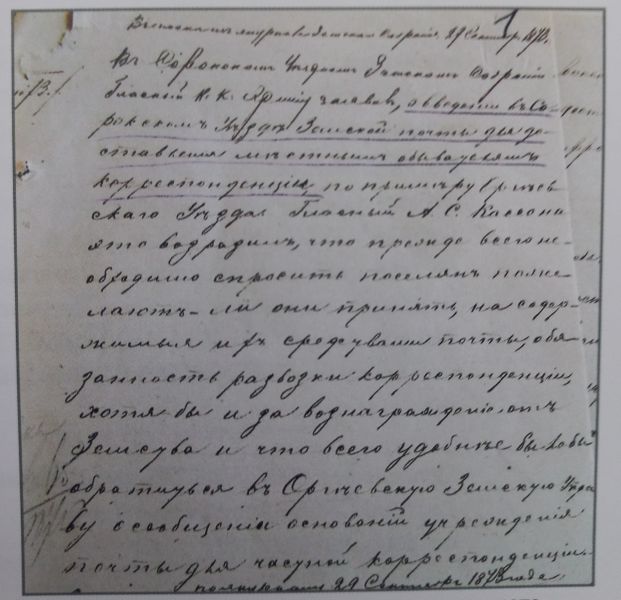 Выписка изъ журнала Земскаго Собранія, 29 Сентября 1873.
1
Въ Сорокскомъ Уѣздномъ Земскомъ Собраніи
Гласный К. К. заявивъ, о введеніи въ Со-
рокскомъ Уѣздѣ Земской почты для до-
ставленія мѣстнымъ обывателямъ
корреспонденціи, по примѣру Оргѣев-
скаго Уѣзда. Гласный А. С. Кассо на
это возразилъ, что прежде всего не-
обходимо спросить поселянъ поже-
лаютъ-ли они принять, на содер-
жимыя ихъ средствами почты, обя-
занность развозки корреспонденціи,
хотя бы и за вознагражденіе отъ
Земства и что всего удобнѣе было бы
обратиться въ Оргѣевскую Земскую Упра-
ву о сообщеніи основаній учрежденія
почты для частной корреспонденціи.
29 Сентября 1873 года.